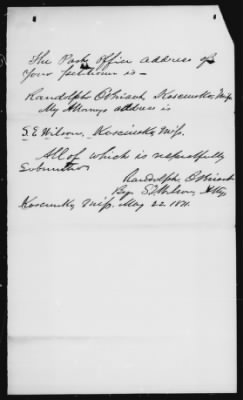 The Post Office address of
your petitioner is —
Randolph O Briant Kosciusko Miss.
My Attorneys address is
S. E Wilson, Kosciusko Miss.
All of which is respectfully
Submitted
Randolph O Briant
By S E Wilson, Atty
Kosciusko Miss, May 22. 1871.